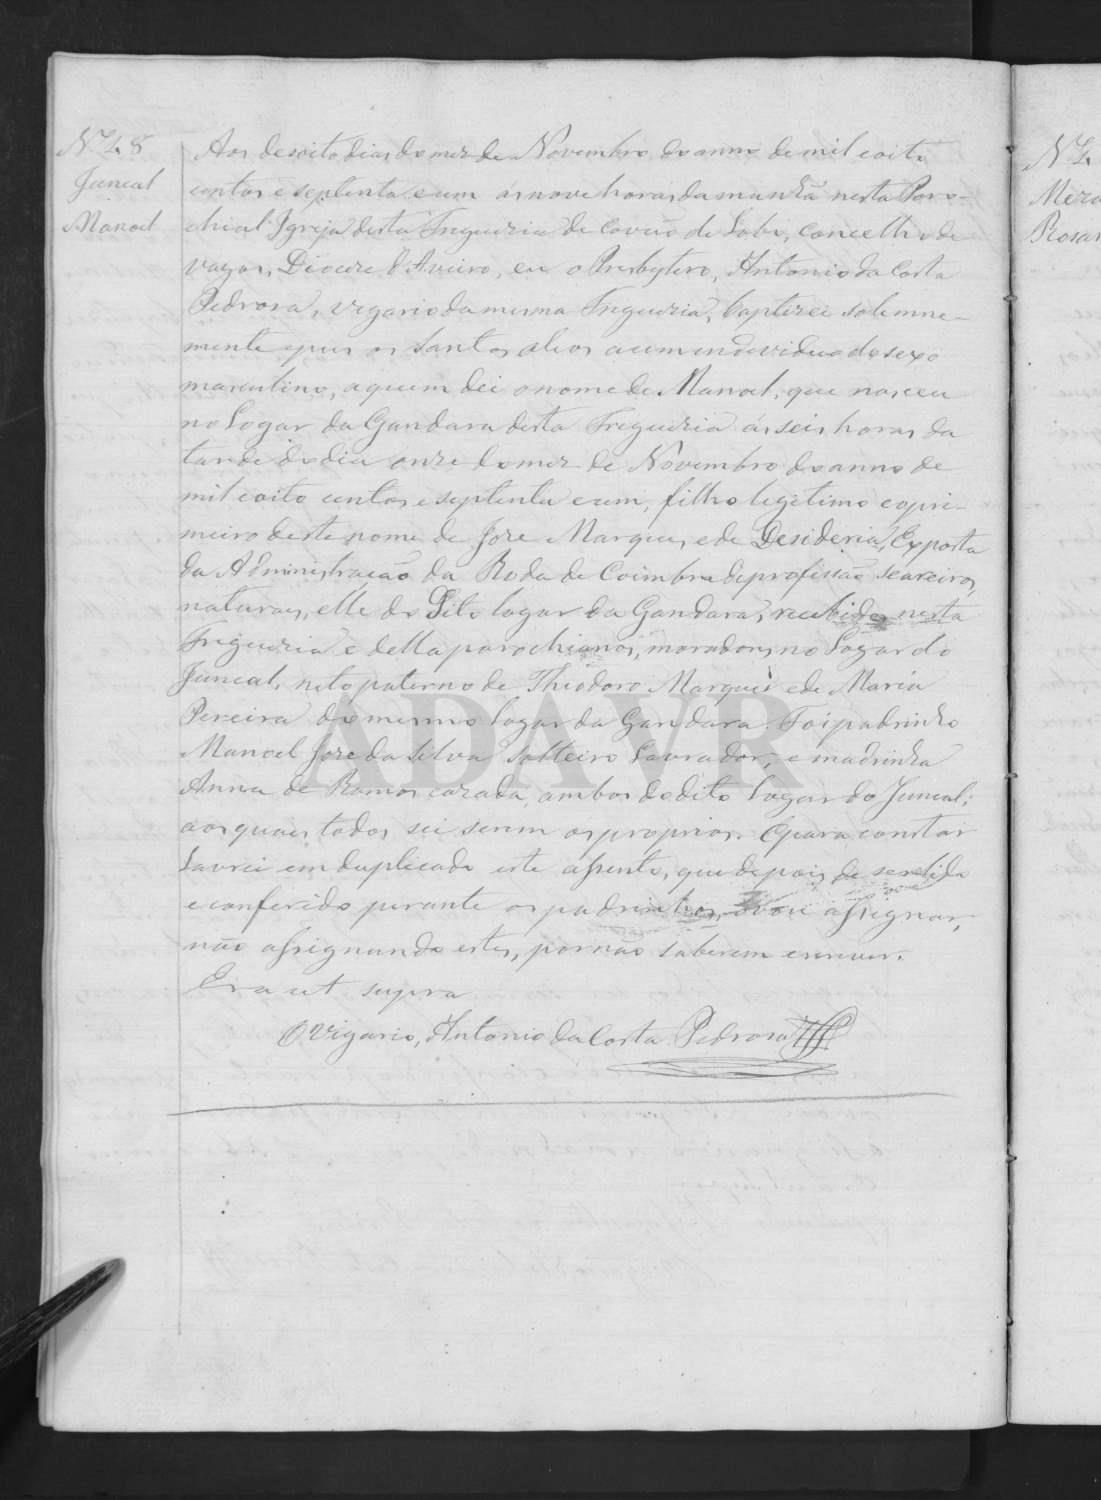 Nº 48
Juncal
Manoel
Aos desoito dias do mez de Novembro do anno de mil e oito
centos e septenta e um ás nove horas da manhã nesta Paro-
chial Igreja desta Freguezia de Covão do Lobo, concelho de
Vagos, Diocese d'Aveiro, eu o Presbytero, Antonio da Costa
Pedrosa, vigario da mesma Freguezia, baptizei solemne-
mente e puz os Santos oleos a um individuo do sexo
masculino, a quem dei o nome de Manoel, que nasceu
no Logar da Gandara desta Freguezia ás seis horas da
tarde do dia onze do mez de Novembro do anno de
mil e oito centos e septenta e um, filho legitimo e pri-
meiro deste nome de Joze Marques, e de Desideria, Exposta
da Administração da Roda de Coimbra de profissão seareiros,
naturaes, elle do Dito logar da Gandara, recebidos nesta
Freguezia e della parochianos, moradores no Logar do
Juncal, neto paterno de Theodoro Marques e de Maria
Pereira do mesmo Logar da Gandara. Foi padrinho
Manoel Joze da Silva solteiro Lavrador, e madrinha
Anna de Ramos cazada, ambos do dito Logar do Juncal;
aos quaes todos sei serem os proprios. E para constar
Lavrei em duplicado este assento, que depois de ser lido
e conferido perante os padrinhos, vou assignar,
não assignando estes, por não saberem escrever.
Era ut supra
O Vigario, Antonio da Costa Pedrosa
ADAVR
Nº
Rosar